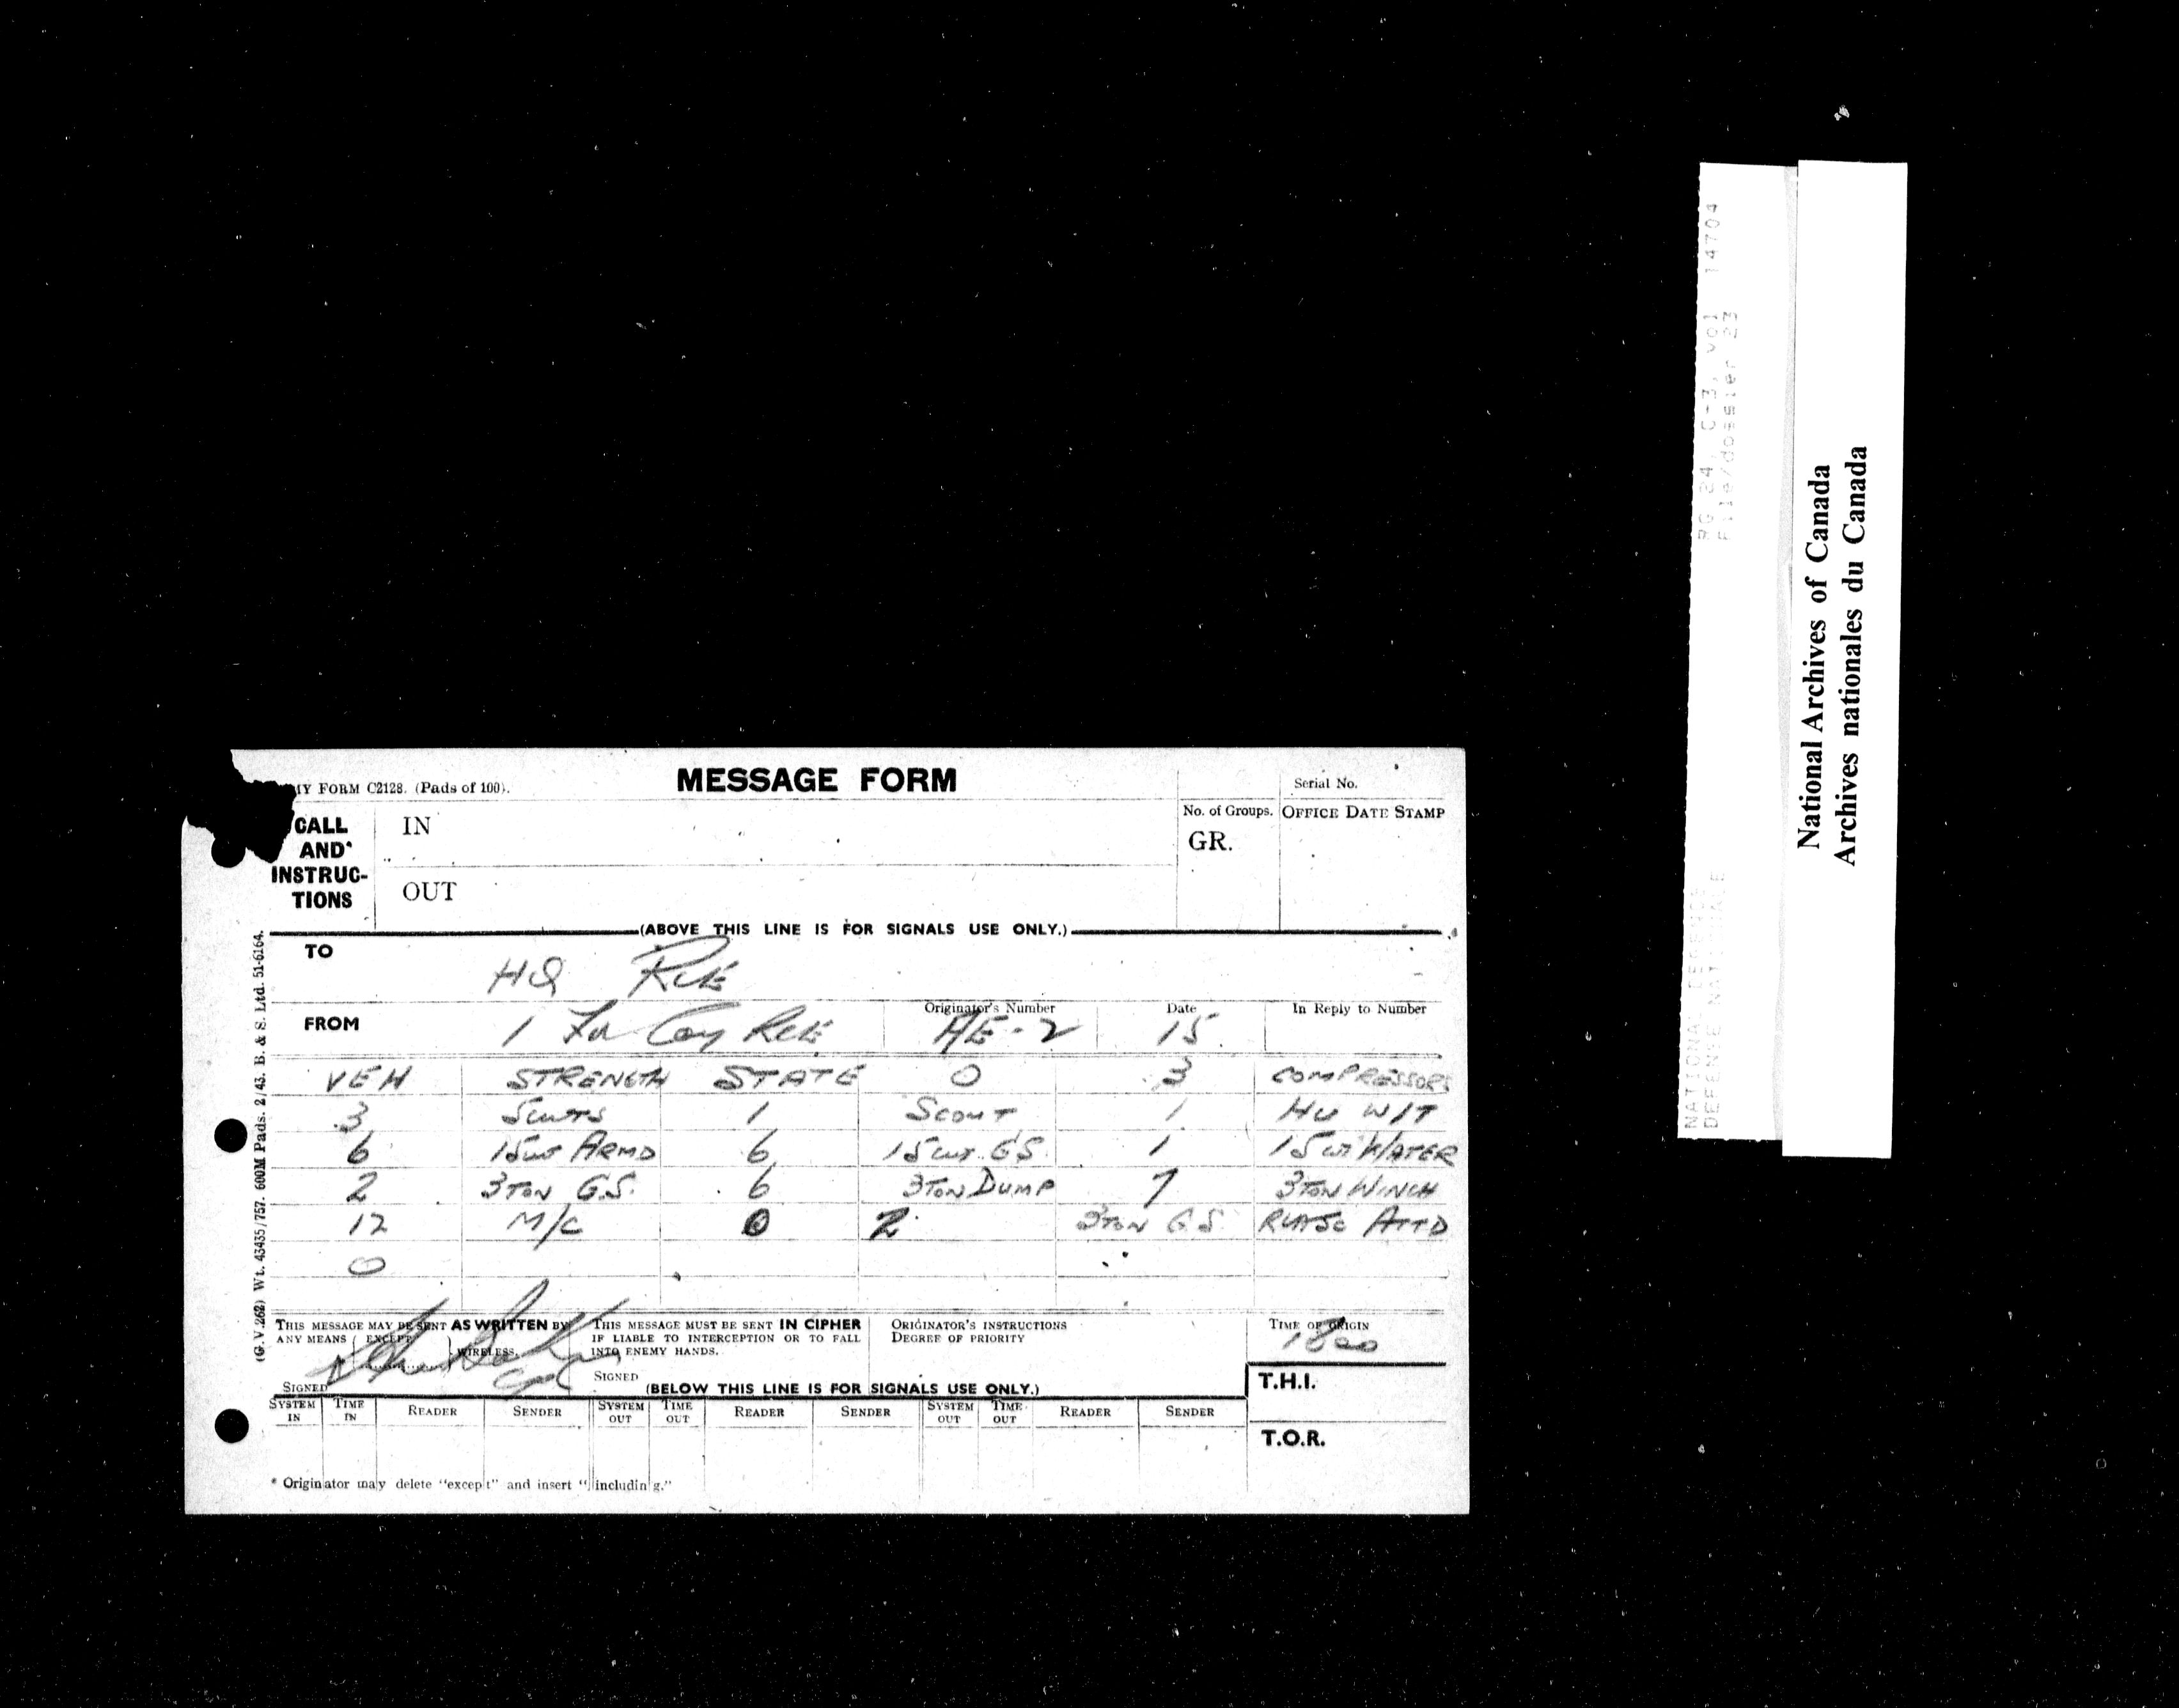 MY FORM C2128. (Pads of 100).
MESSAGE FORM
Serial No.
CALL AND INSTRUC-TIONS
IN
No. of Groups.
GR.
OFFICE DATE STAMP
OUT
(ABOVE THIS LINE IS FOR SIGNALS USE ONLY.)
TO
HQ RCE
FROM
1 Fd Coy RCE
Originator's Number
AE-2
Date
15
In Reply to Number
VEH STRENGTH STATE O 3 COMPRESSORS
3 5cwts 1 SCOUT 1 HU W/T
6 15cwt ARMD 6 15cwt GS 1 15cwt WATER
2 3TON G.S. 6 3TON DUMP 7 3TON WINCH
12 M/C O 2 3TON G.S. RCASC ATTD
O
THIS MESSAGE MAY BE SENT AS WRITTEN BY
ANY MEANS (EXCEPT) WIRELESS.
SIGNED
THIS MESSAGE MUST BE SENT IN CIPHER
IF LIABLE TO INTERCEPTION OR TO FALL
INTO ENEMY HANDS.
SIGNED
ORIGINATOR'S INSTRUCTIONS
DEGREE OF PRIORITY
TIME OF ORIGIN
1800
(BELOW THIS LINE IS FOR SIGNALS USE ONLY.)
T.H.I.
SYSTEM IN TIME IN READER SENDER SYSTEM OUT TIME OUT READER SENDER SYSTEM OUT TIME OUT READER SENDER
T.O.R.
* Originator may delete "except" and insert "including."
(G.V.262) Wt. 43435/757. 600M Pads. 2/43. B. & S. Ltd. 51-6164.
RG 24, C-3, vol 14704
File/dossier 23
NATIONAL DEFENCE
DEFENSE NATIONALE
National Archives of Canada
Archives nationales du Canada